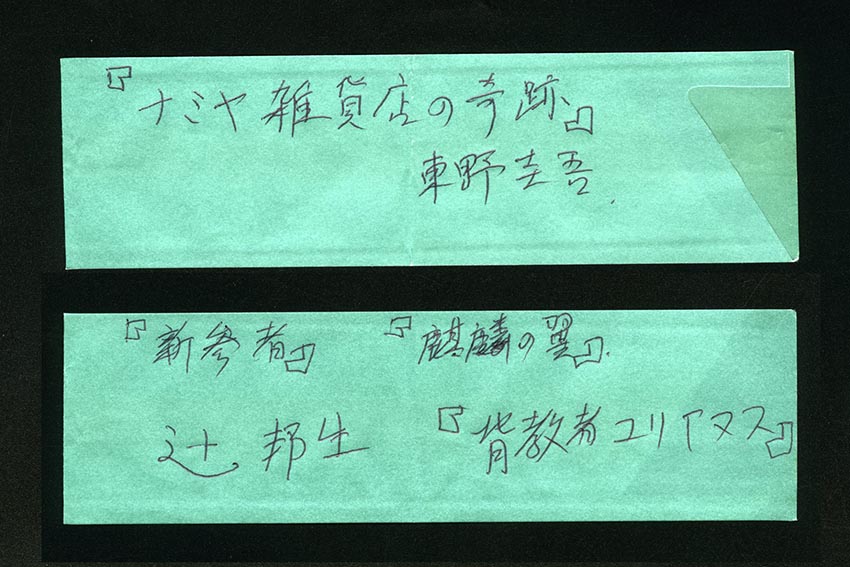 『ナミヤ雑貨店の奇跡』
東野圭吾.
『新参者』 『麒麟の翼』.
辻邦生 『背教者ユリアヌス』